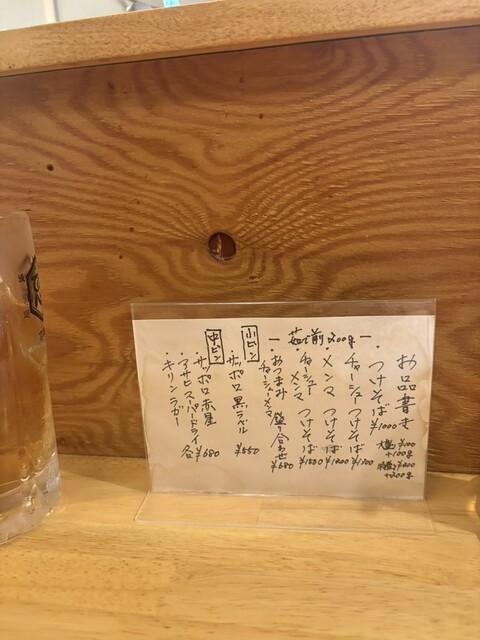 お品書き
つけそば ¥1000
大盛り ¥100
+100g
¥200
+200g
チャーシュー つけそば
メンマ つけそば ¥1200
チャーシュー
メンマ つけそば
茹で前 200g
おつまみ 盛り合わせ ¥680
チャーシュー メンマ
小ビン
・サッポロ 黒ラベル ¥550
中ビン
・サッポロ 赤星
・アサヒ スーパードライ 各¥680
・キリン ラガー